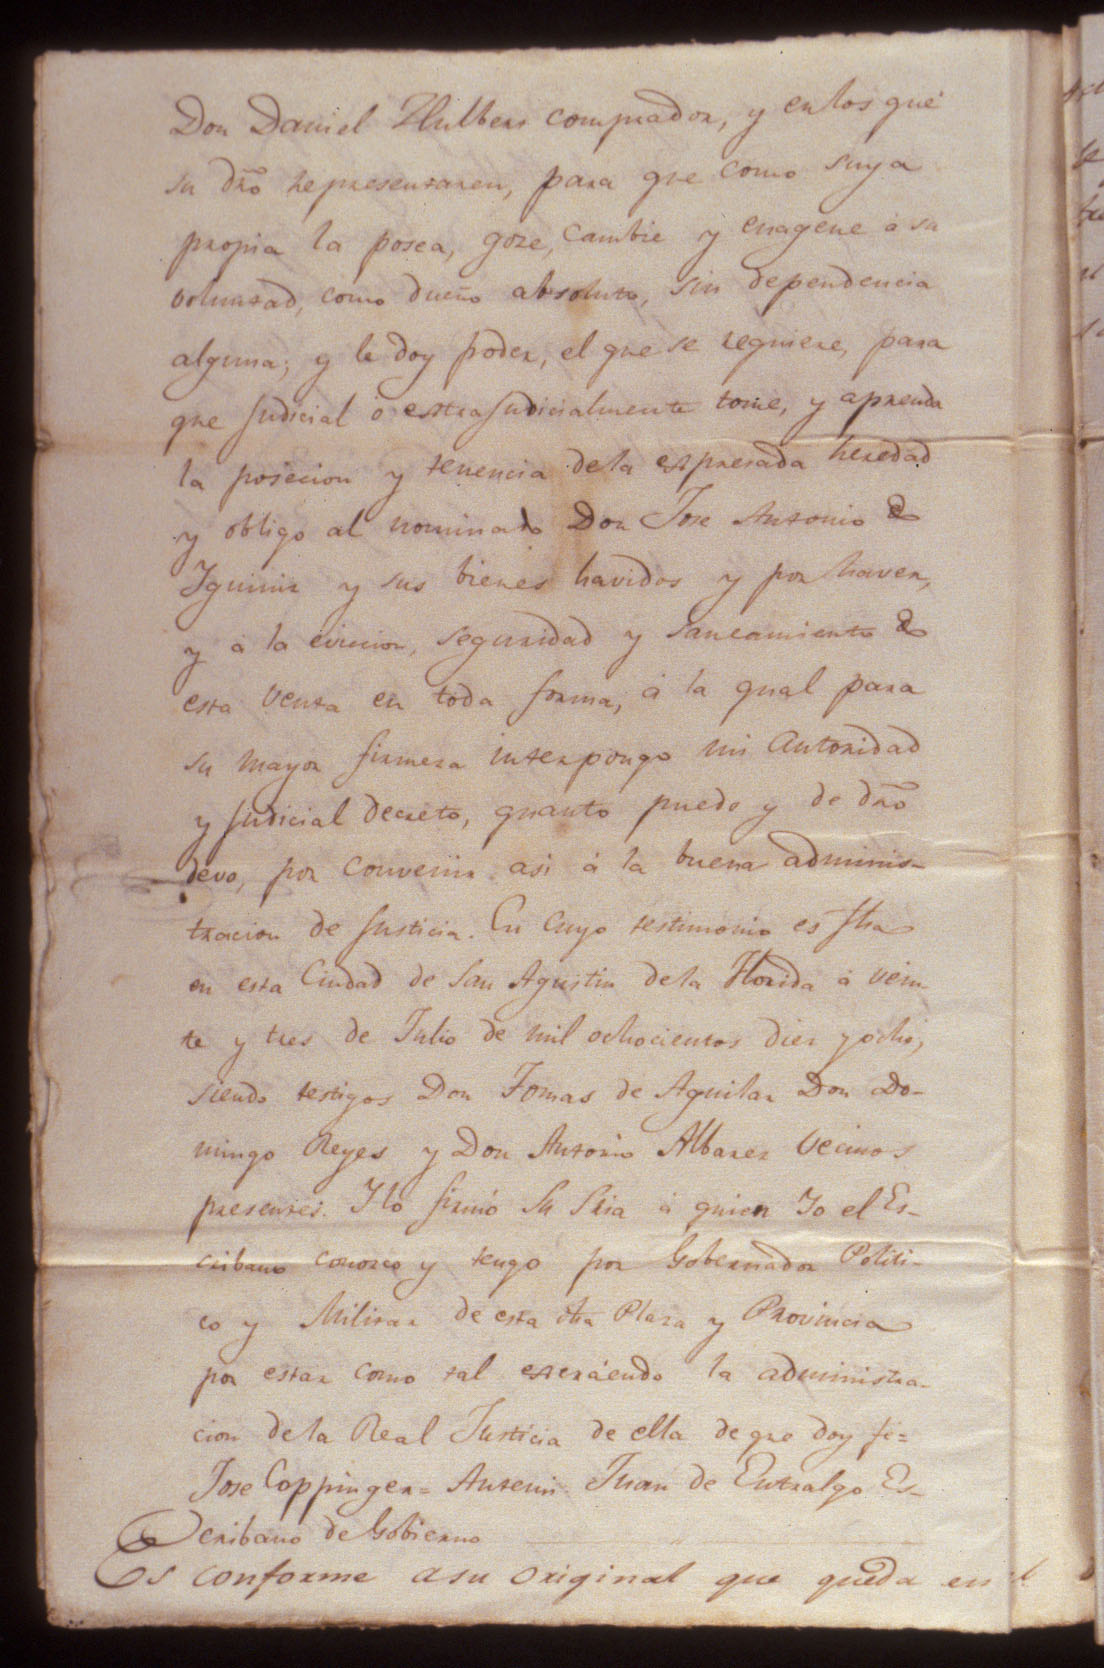 Don Daniel Hulbert comprador, y en los que
su dr̃o representaren, para que como suya
propia la posea, goze, cambie y enagene á su
voluntad, como dueño absoluto, sin dependencia
alguna; y le doy poder, el que se requiere, para
que judicial ó estrajudicialmente tome, y aprenda
la posecion y tenencia de la expresada heredad
y obligo al nominado Don Jose Antonio de
Yguiniz y sus bienes havidos y por haver,
y á la eviccion, seguridad y saneamiento de
esta venta en toda forma, á la qual para
su mayor firmeza interpongo mi Autoridad
y judicial decreto, quanto puedo y de dr̃o
devo, por convenir asi á la buena adminis-
tracion de justicia. En cuyo testimonio es fha
en esta Ciudad de San Agustin de la Florida á vein
te y tres de Julio de mil ochocientos diez y ocho,
siendo testigos Don Tomas de Aguilar Don Do-
mingo Reyes y Don Antonio Albarez vecinos
presentes. Y lo firmó Su Sria á quien Yo el Es-
cribano conozco y tengo por Gobernador Politi-
co y Militar de esta dha Plaza y Provincia
por estar como tal exerciendo la administra-
cion de la Real Justicia de ella de que doy fe=
Jose Coppinger= Antemi Juan de Entralgo Es-
cribano de Gobierno
Es conforme a su original que queda en el